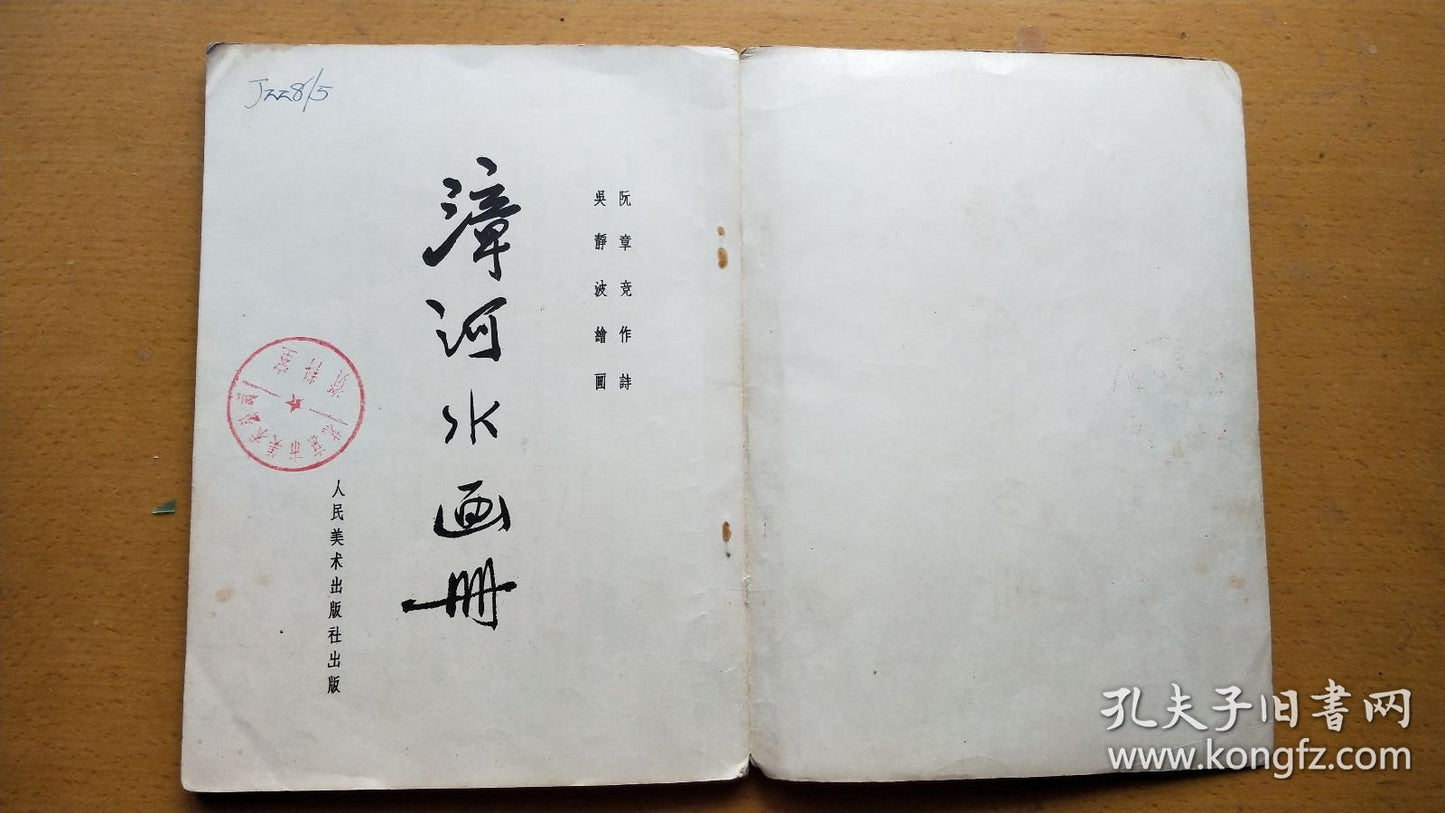 J228/5
阮章竞作詩
吳靜波繪画
漳河水画册
资料室
人民美术出版社出版
孔夫子旧書网
www.kongfz.com